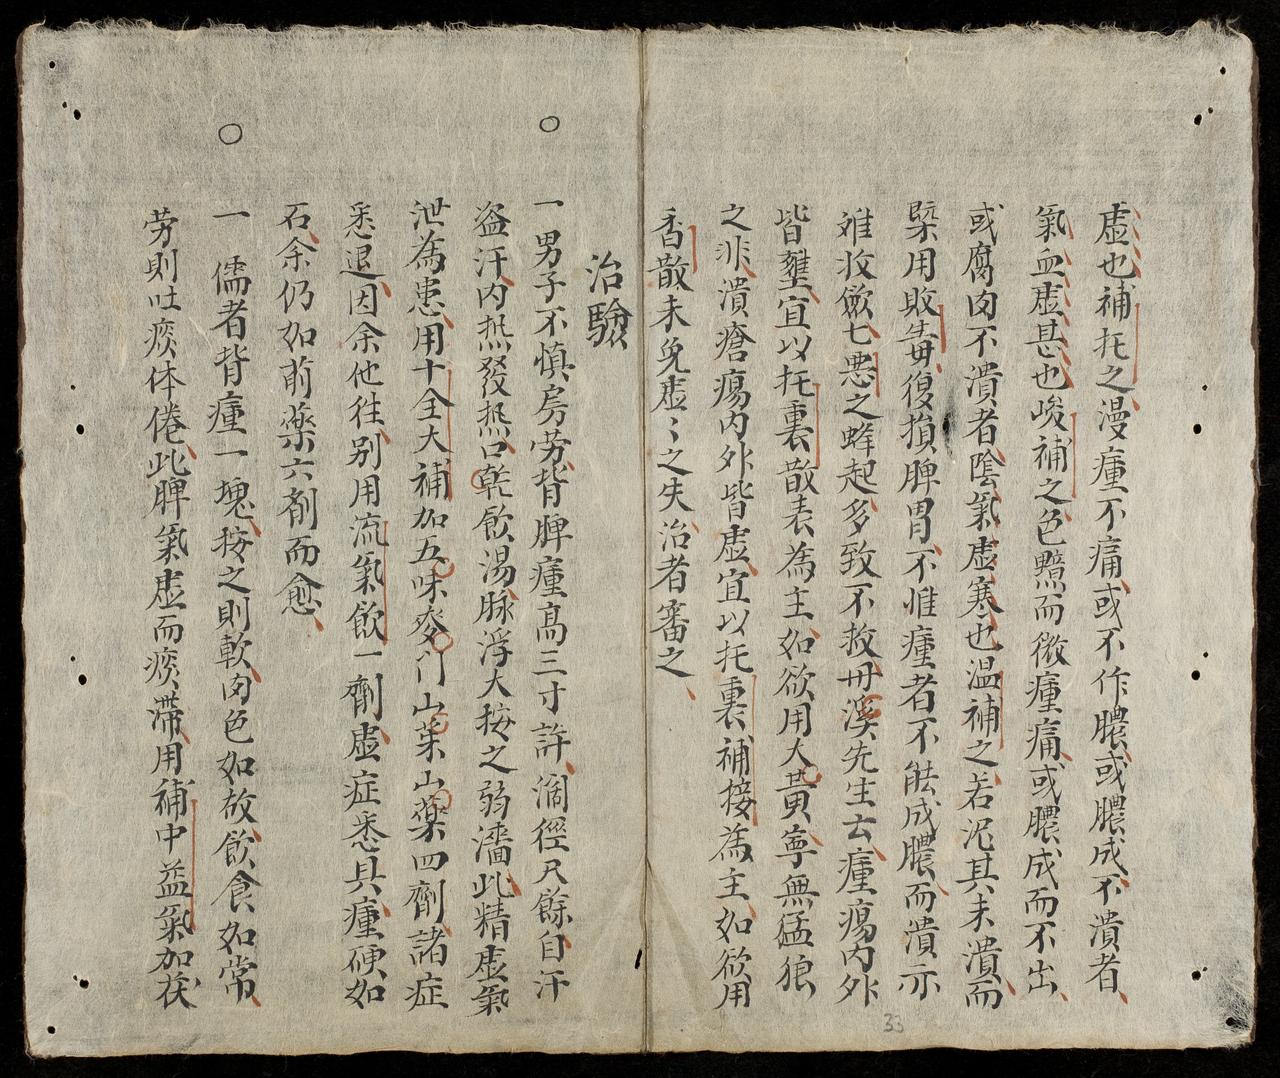 虚也補托之漫瘇不痛或不作膿或膿成不潰者
氣血虚甚也峻補之色黯而微瘇痛或膿成而不出
或腐肉不潰者陰氣虚寒也温補之若泥其未潰而
槩用敗毒復損脾胃不惟瘇者不能成膿而潰亦
难收斂七悪之蜂起多致不救丹溪先生云瘇瘍内外
皆壅宜以托裏散表為主如欲用大黄寧無猛狼
之非潰瘡瘍内外皆虚宜以托裏補接為主如欲用
香散未免虚〻之失治者審之
治驗
一男子不慎房劳背脾瘇高三寸許濶徑尺餘自汗
盗汗内热發热口乾飲湯脉浮大按之弱濇此精虚氣
泄為患用十全大補加五味麥门山茱山藥四劑諸症
悉退因余他往别用流氣飲一劑虚症悉具瘇硬如
石余仍如前藥六剤而愈
一儒者背瘇一塊按之則軟肉色如故飲食如常
劳則吐痰体倦此脾氣虚而痰滯用補中益氣加茯
33